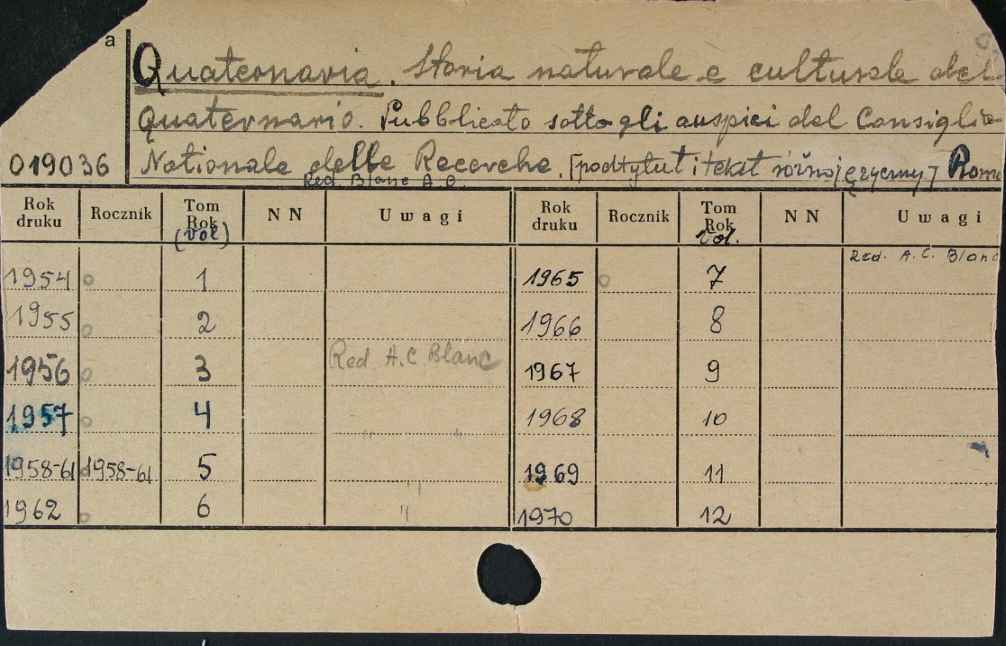 a
Quaternaria. Storia naturale e culturale del
Quaternario. Pubblicato sotto gli auspici del Consiglio
019036 Nationale delle Recerche. [podtytuł i tekst różnojęzyczny] Roma
Red. Blanc A. C.
Rok druku Rocznik Tom Rok (vol) N N Uwagi Rok druku Rocznik Tom Rok vol. N N Uwagi
Red. A. C. Blanc
1954 o 1 1965 o 7
1955 o 2 1966 8
1956 o 3 Red. A. C. Blanc 1967 9
1957 o 4 " " 1968 10
1958-61 1958-61 5 " 1969 11
1962 o 6 " 1970 12